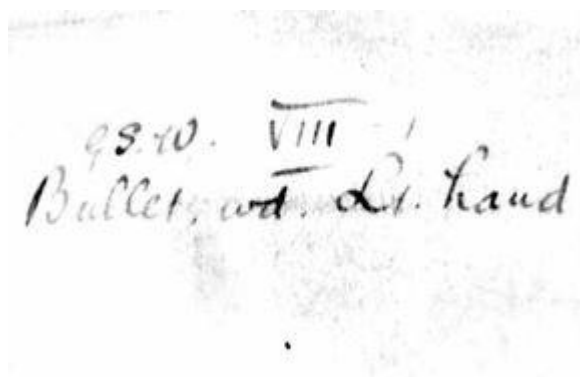 G.S.W. VIII 1
Bullet. wd. Lt. hand